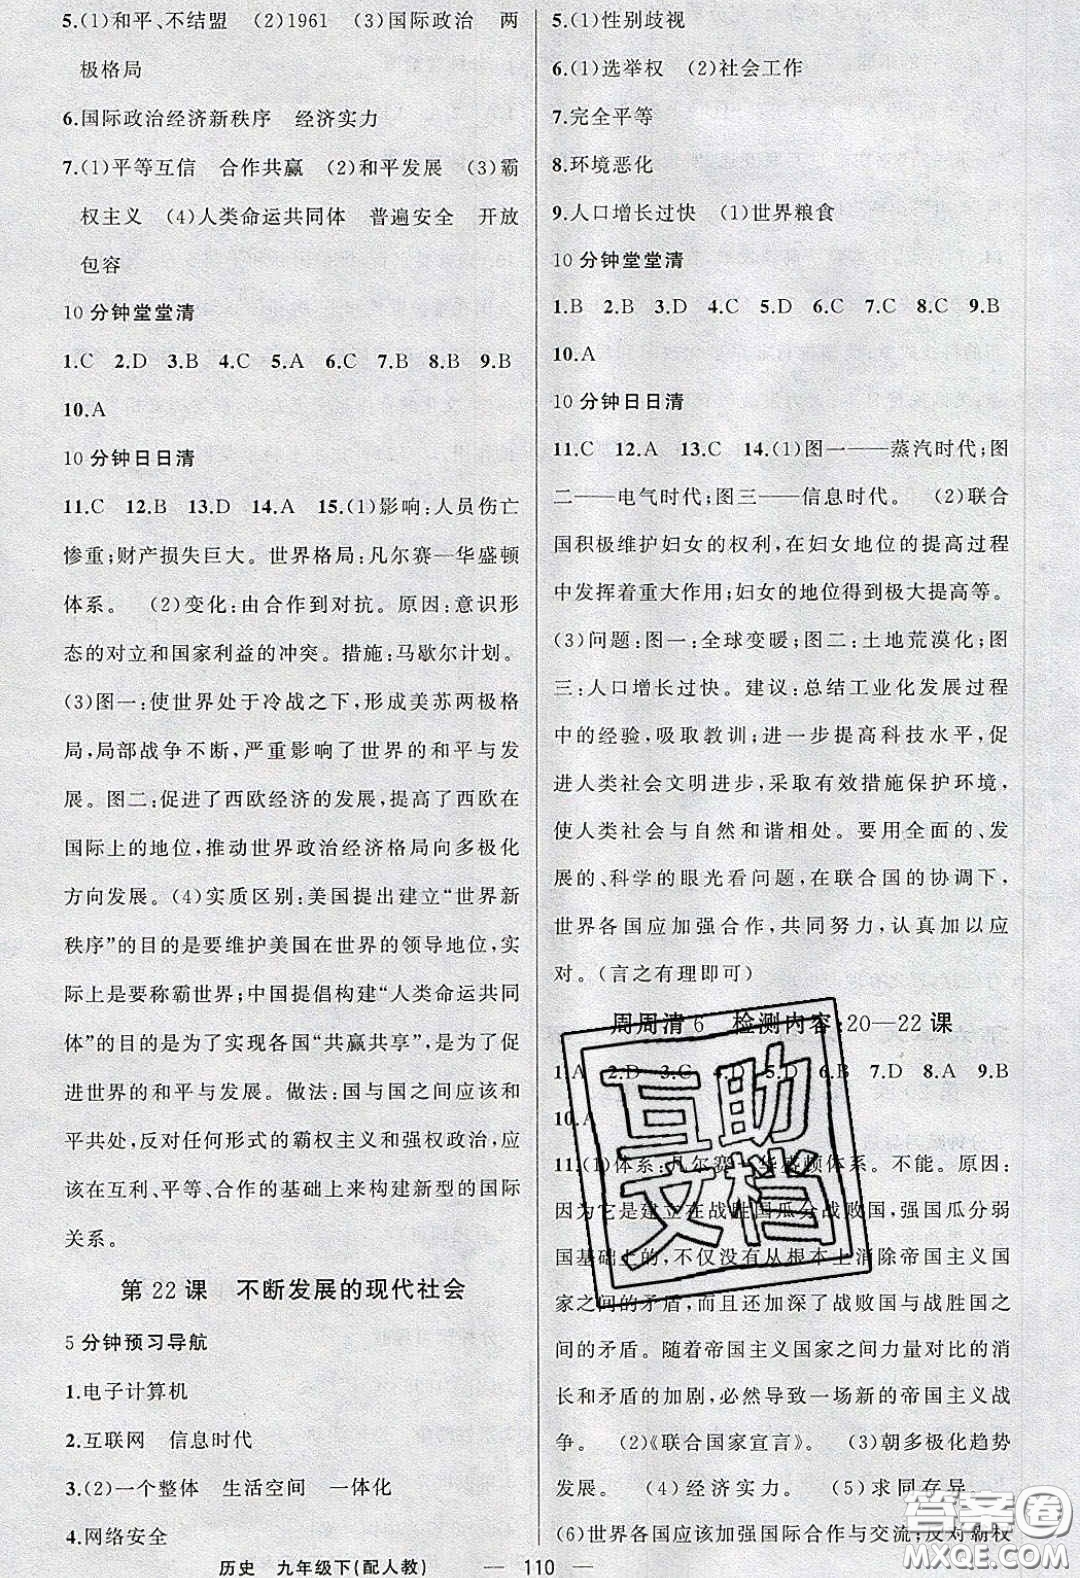 5.(1)和平、不结盟 (2)1961 (3)国际政治 两
极格局
6.国际政治经济新秩序 经济实力
7.(1)平等互信 合作共赢 (2)和平发展 (3)霸
权主义 (4)人类命运共同体 普遍安全 开放
包容
10分钟堂堂清
1.C 2.D 3.B 4.C 5.A 6.C 7.B 8.B 9.B
10.A
10分钟日日清
11.C 12.B 13.D 14.A 15.(1)影响:人员伤亡
惨重;财产损失巨大。世界格局:凡尔赛—华盛顿
体系。 (2)变化:由合作到对抗。原因:意识形
态的对立和国家利益的冲突。措施:马歇尔计划。
(3)图一:使世界处于冷战之下,形成美苏两极格
局,局部战争不断,严重影响了世界的和平与发
展。图二:促进了西欧经济的发展,提高了西欧在
国际上的地位,推动世界政治经济格局向多极化
方向发展。(4)实质区别:美国提出建立“世界新
秩序”的目的是要维护美国在世界的领导地位,实
际上是要称霸世界;中国提倡构建“人类命运共同
体”的目的是为了实现各国“共赢共享”,是为了促
进世界的和平与发展。做法:国与国之间应该和
平共处,反对任何形式的霸权主义和强权政治,应
该在互利、平等、合作的基础上来构建新型的国际
关系。
第22课 不断发展的现代社会
5分钟预习导航
1.电子计算机
2.互联网 信息时代
3.(2)一个整体 生活空间 一体化
4.网络安全
5.(1)性别歧视
6.(1)选举权 (2)社会工作
7.完全平等
8.环境恶化
9.人口增长过快 (1)世界粮食
10分钟堂堂清
1.B 2.B 3.D 4.C 5.D 6.C 7.C 8.C 9.B
10.A
10分钟日日清
11.C 12.A 13.C 14.(1)图一——蒸汽时代;图
二——电气时代;图三——信息时代。 (2)联合
国积极维护妇女的权利,在妇女地位的提高过程
中发挥着重大作用;妇女的地位得到极大提高等。
(3)问题:图一:全球变暖;图二:土地荒漠化;图
三:人口增长过快。建议:总结工业化发展过程
中的经验,吸取教训;进一步提高科技水平,促
进人类社会文明进步,采取有效措施保护环境,
使人类社会与自然和谐相处。要用全面的、发
展的、科学的眼光看问题,在联合国的协调下,
世界各国应加强合作,共同努力,认真加以应
对。(言之有理即可)
周周清6 检测内容:20—22课
1.A 2.D 3.C 4.D 5.D 6.B 7.D 8.A 9.B
10.A
11.(1)体系:凡尔赛—华盛顿体系。不能。原因:
因为它是建立在战胜国瓜分战败国,强国瓜分弱
国基础上的,不仅没有从根本上消除帝国主义国
家之间的矛盾,而且还加深了战败国与战胜国之
间的矛盾。随着帝国主义国家之间力量对比的消
长和矛盾的加剧,必然导致一场新的帝国主义战
争。 (2)《联合国家宣言》。 (3)朝多极化趋势
发展。 (4)经济实力。 (5)求同存异。
(6)世界各国应该加强国际合作与交流;反对霸权
互助
文档
答案圈
MXQE.COM
历史 九年级下(配人教) — 110 —